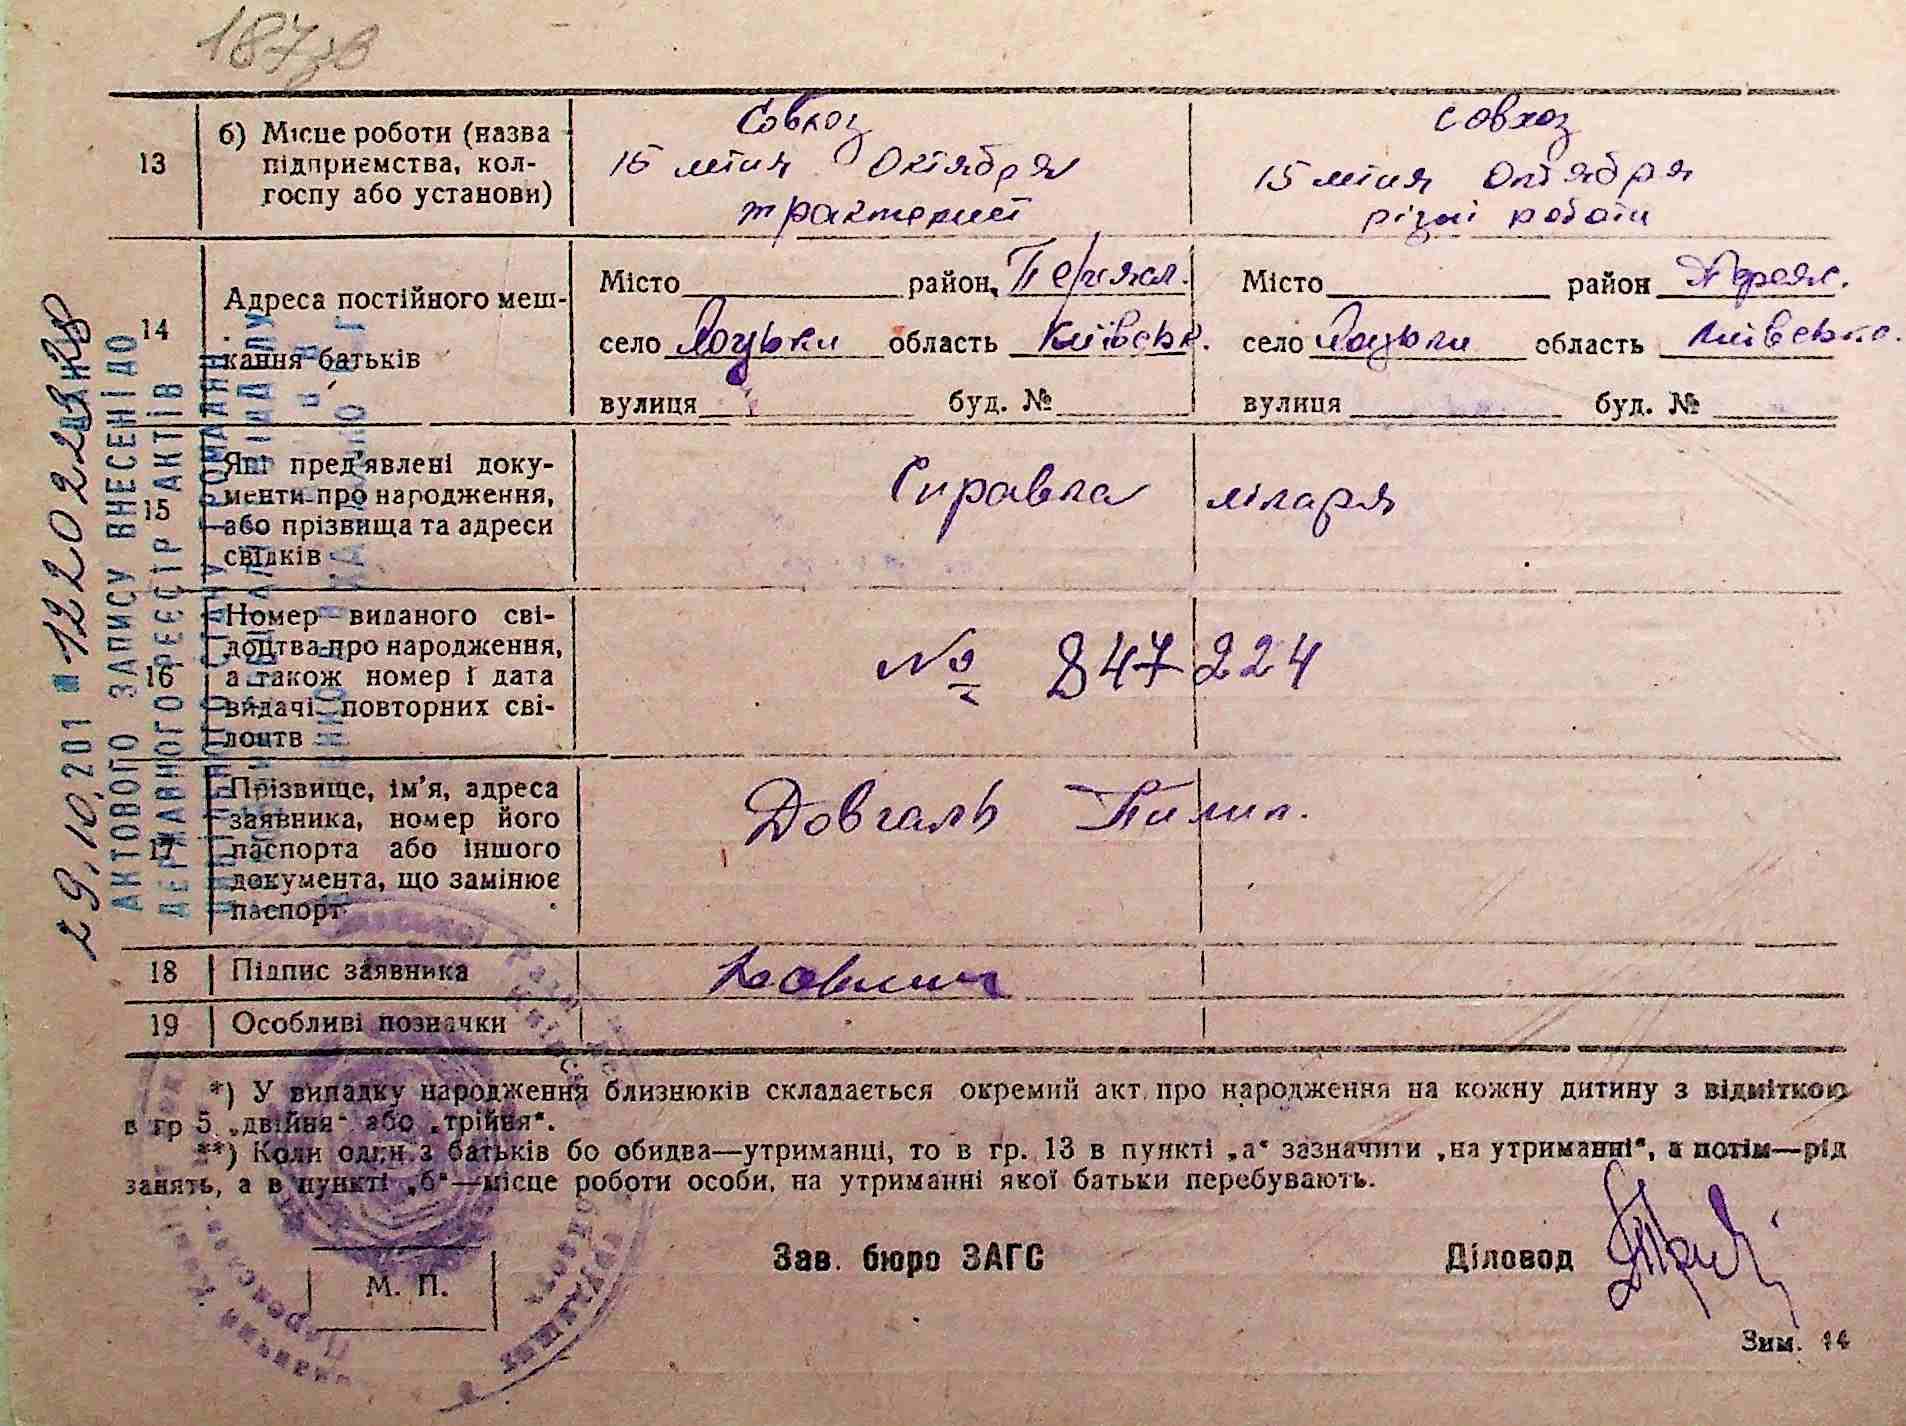 187зв
13
б) Місце роботи (назва підприємства, колгоспу або установи)
Совхоз
15 ліття Октября
тракторист
совхоз
15 ліття Октября
різні роботи
14
Адреса постійного мешкання батьків
Місто район Переясл.
село Лоцьки область Київськ.
вулиця буд. №
Місто район Переял.
село Лоцьки область Київськ.
вулиця буд. №
15
Які пред'явлені документи про народження, або прізвища та адреси свідків
Справка лікаря
16
Номер виданого свідоцтва про народження, а також номер і дата видачі повторних свідоцтв
№ 847224
17
Прізвище, ім'я, адреса заявника, номер його паспорта або іншого документа, що замінює паспорт
Довгаль Пилип.
18 Підпис заявника
19 Особливі позначки
*) У випадку народження близнюків складається окремий акт про народження на кожну дитину з відміткою
в гр 5 „двійня" або „трійня".
**) Коли один з батьків бо обидва—утриманці, то в гр. 13 в пункті „а" зазначити „на утриманні", а потім—рід
занять, а в пункті „б"—місце роботи особи, на утриманні якої батьки перебувають.
М. П.
Зав. бюро ЗАГС
Діловод
Зим. 14
29.10.201
АКТОВОГО ЗАПИСУ ВНЕСЕНІ ДО
ДЕРЖАВНОГО РЕЄСТР АКТІВ
ГРОМАДЯН